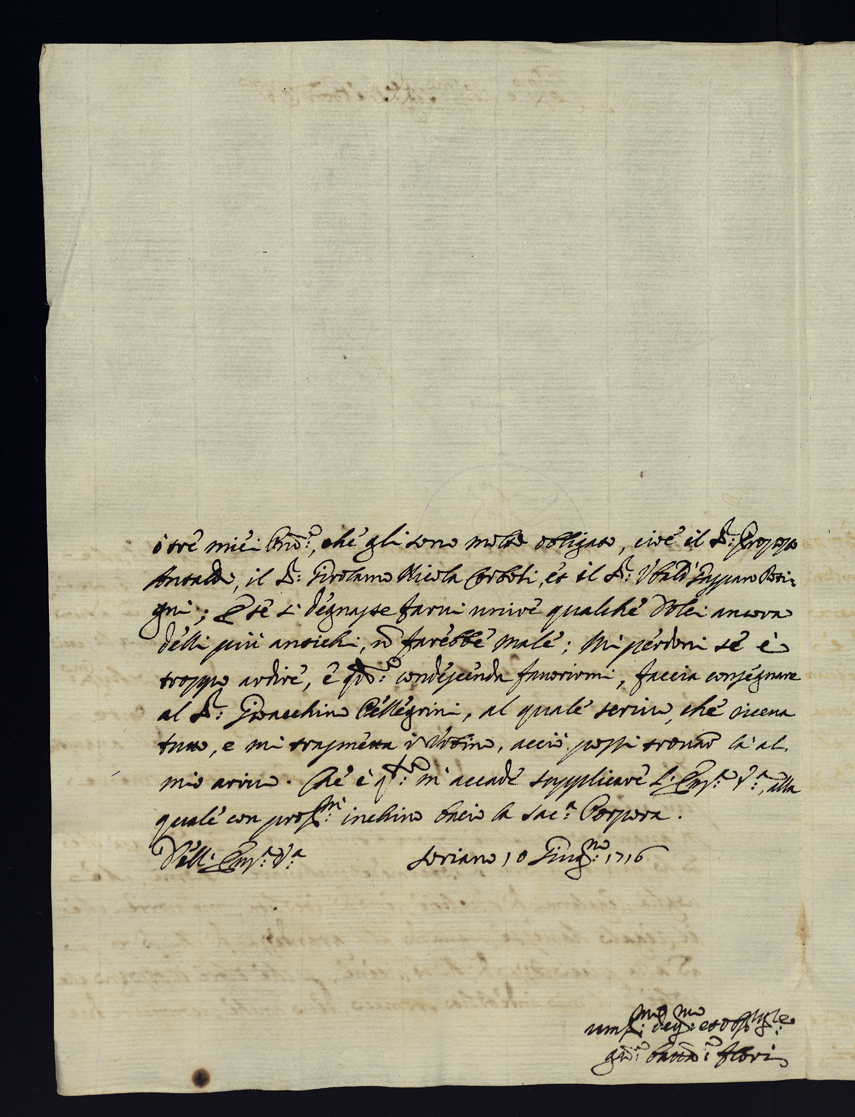 ò trè miei che gli sono molto obligato, cioè il Sr: Prospero
Antaldi, il Sr: Girolamo Nicola Corboli, et il Sr: Ubald' Gasparo
gni; E sè si degnasse farvi unire qualche d'Olei ancora
delli più antichi, nō farebbe male; Mi perdoni sè è
troppo ardire, è qdo: condescenda favorirmi, faccia consegnare
al Sr: Gioacchino Pellegrini, al quale scrivo, che riceva
tutto, e mi trasmetta in Urbino, acciò possi trovar là al
mio arivo. Che è qto: m'accade supplicare l'Emza: Va:, alla
quale con profma: inchino bacio la saca: Porpora.
Dell'Emza: Va: Soriano 10 Giugno: 1716
umsmo: devmo: et obblmo